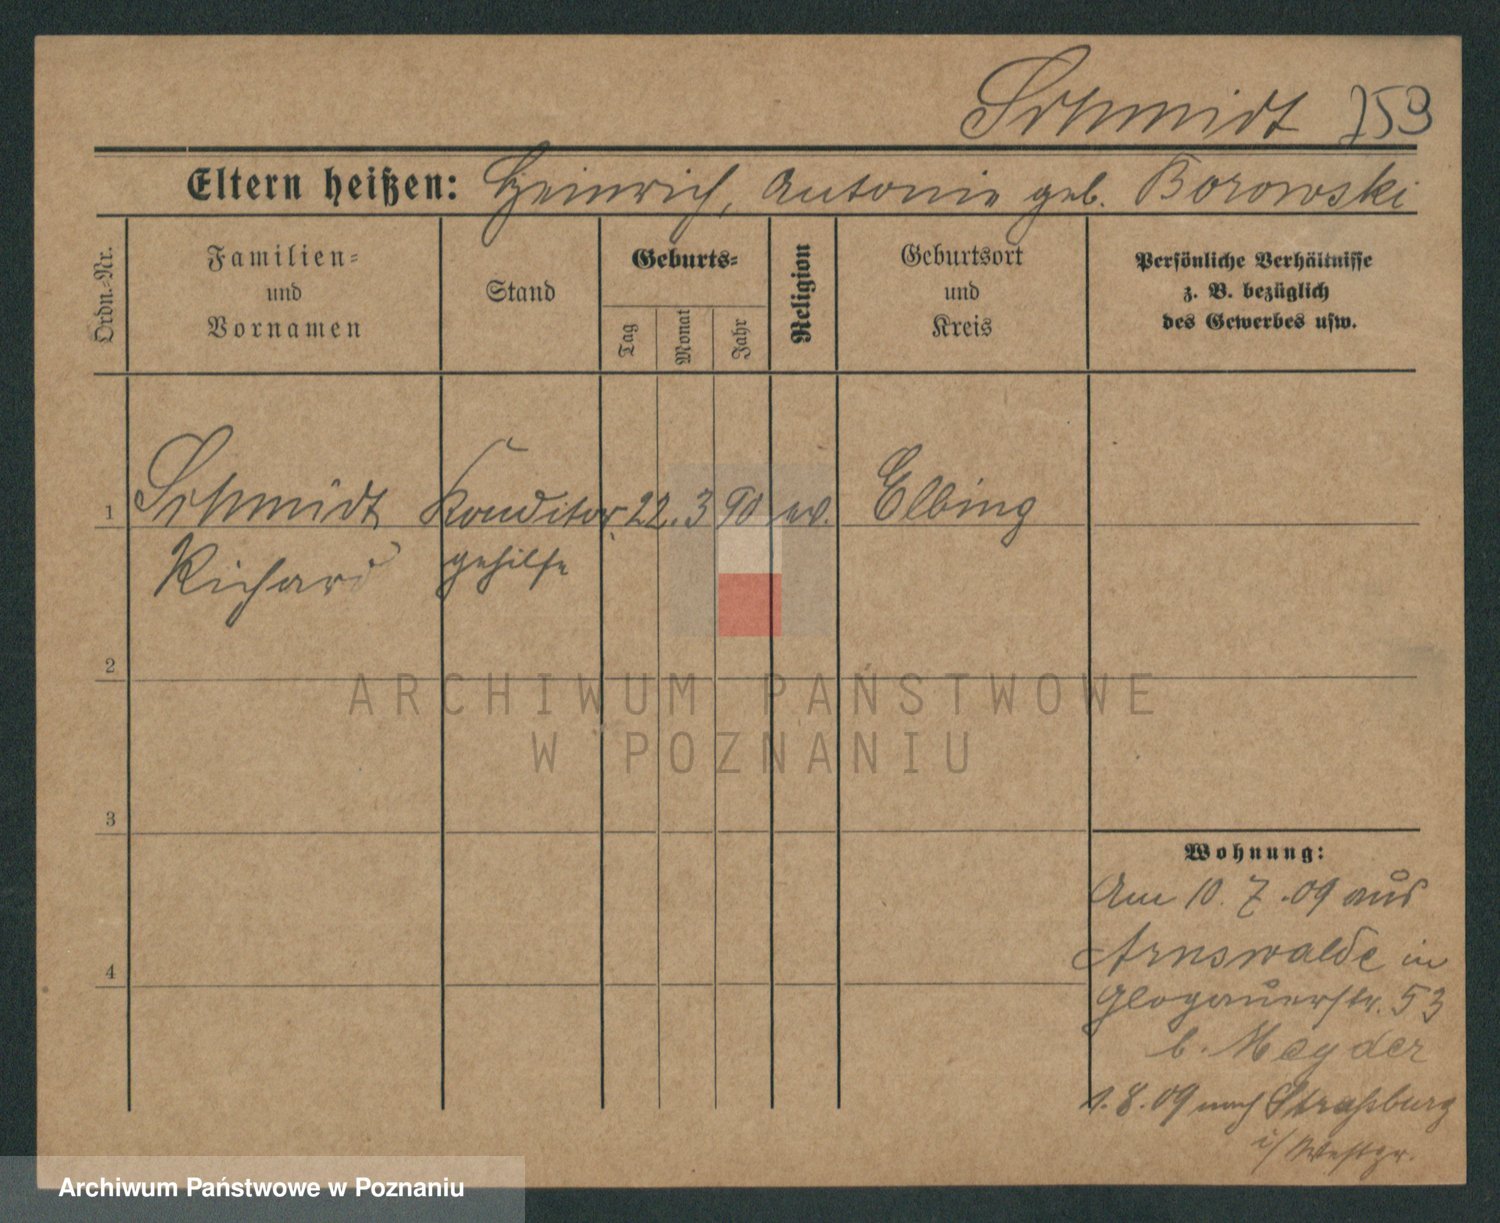 Schmidt 753
Eltern heißen: Heinrich, Antonie geb. Borowski
Ordn.-Nr.
Familien-
und
Vornamen
Stand
Geburts-
Tag
Monat
Jahr
Religion
Geburtsort
und
Kreis
Persönliche Verhältnisse
z. B. bezüglich
des Gewerbes usw.
1 Schmidt Konditor 22. 3 90 ev. Elbing
Richard gehilfe
2
3
4
Wohnung:
Am 10. 7. 09 aus
Arnswalde in
Glogauerstr. 53
b. Meyder
1. 8. 09 nach Straßburg
i/ Westpr.
ARCHIWUM PAŃSTWOWE
W POZNANIU
Archiwum Państwowe w Poznaniu